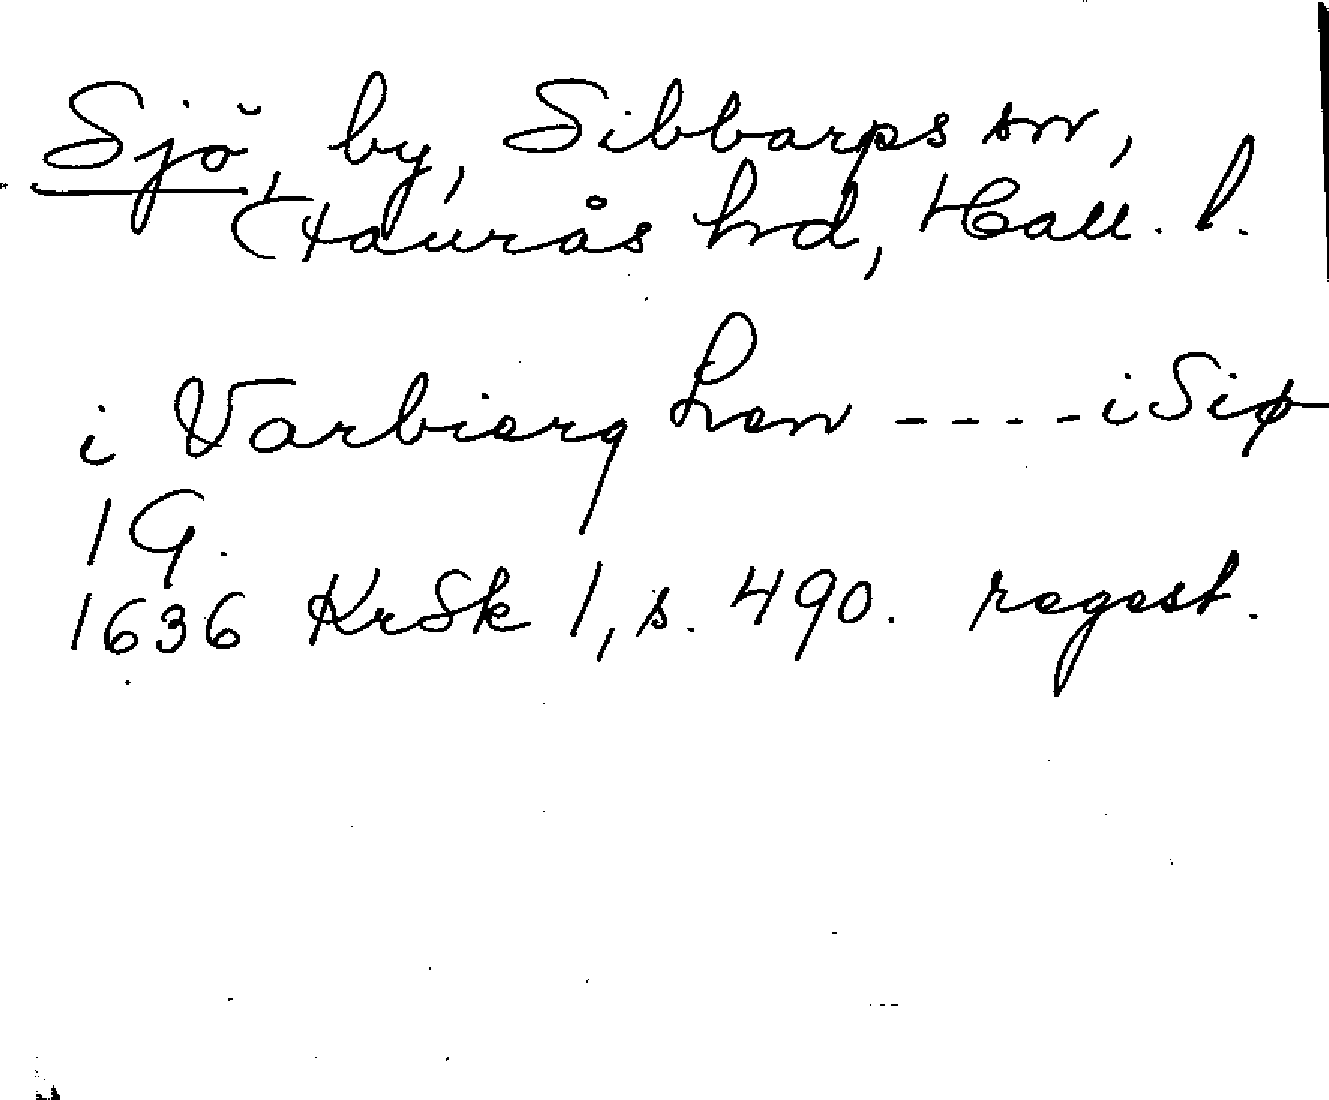 Sjö, by, Sibbarps sn,
Faurås hd, Hall. l.
i Varbierg Len ----i Siø
1 G.
1636 KrSk 1, s. 490. regest.